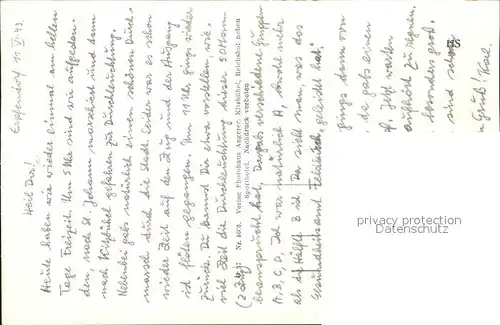 Erpfendorf 11.VI.43.
Heil Dir!
Heute haben wir wieder einmal am hellen
Tage Freizeit. Um 5 Uhr sind wir aufgestan-
den, nach St. Johann marschiert und dann
nach Kitzbühel gefahren zur Durchleuchtung.
Nebenbei gab's natürlich einen schönen Durch-
marsch durch die Stadt. Leider war es schon
wieder Zeit auf den Zug und der Ausgang
ist flöten gegangen. Um 11 Uhr gings wieder
zurück. Du kannst Dir etwa vorstellen, wie-
viel Zeit die Durchleuchtung dieser 500 Mann
(2 Züge) beansprucht hat. Da gab's verschiedene Gruppen
A, B, C, D. Ich war natürlich A, obwohl mehr
als die Hälfte B ist. Da sieht man, was das
Gesundheitsamt Feldkirch "geleistet hat."
Nr. 4073. Verlag Photohaus Angerer, Kitzbühel, Reichshof neben
Sporthotel. Nachdruck verboten
gings dann von
da gab's einen
Jetzt wärten
aufhört zu regnen.
besonders groß,
sind schon
Gruß! Karl
privacy protection
privacy protection